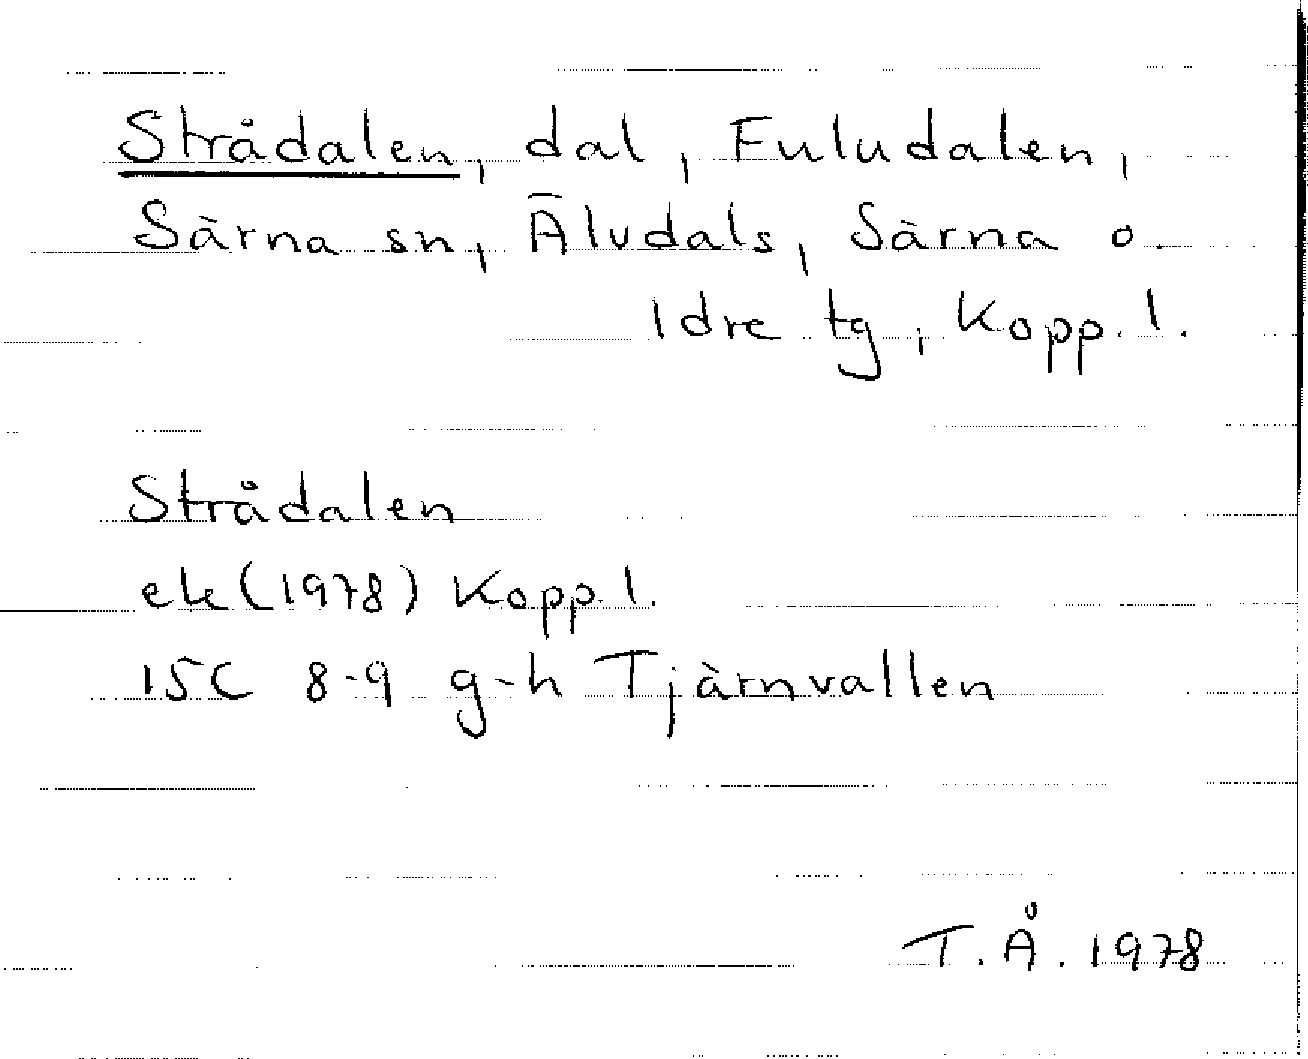 Strådalen, dal, Fuludalen,
Särna sn, Älvdals, Särna o.
Idre tg, Kopp. l.
Strådalen
ek (1978) Kopp l.
15C 8-9 g-h Tjärnvallen
T.Å. 1978